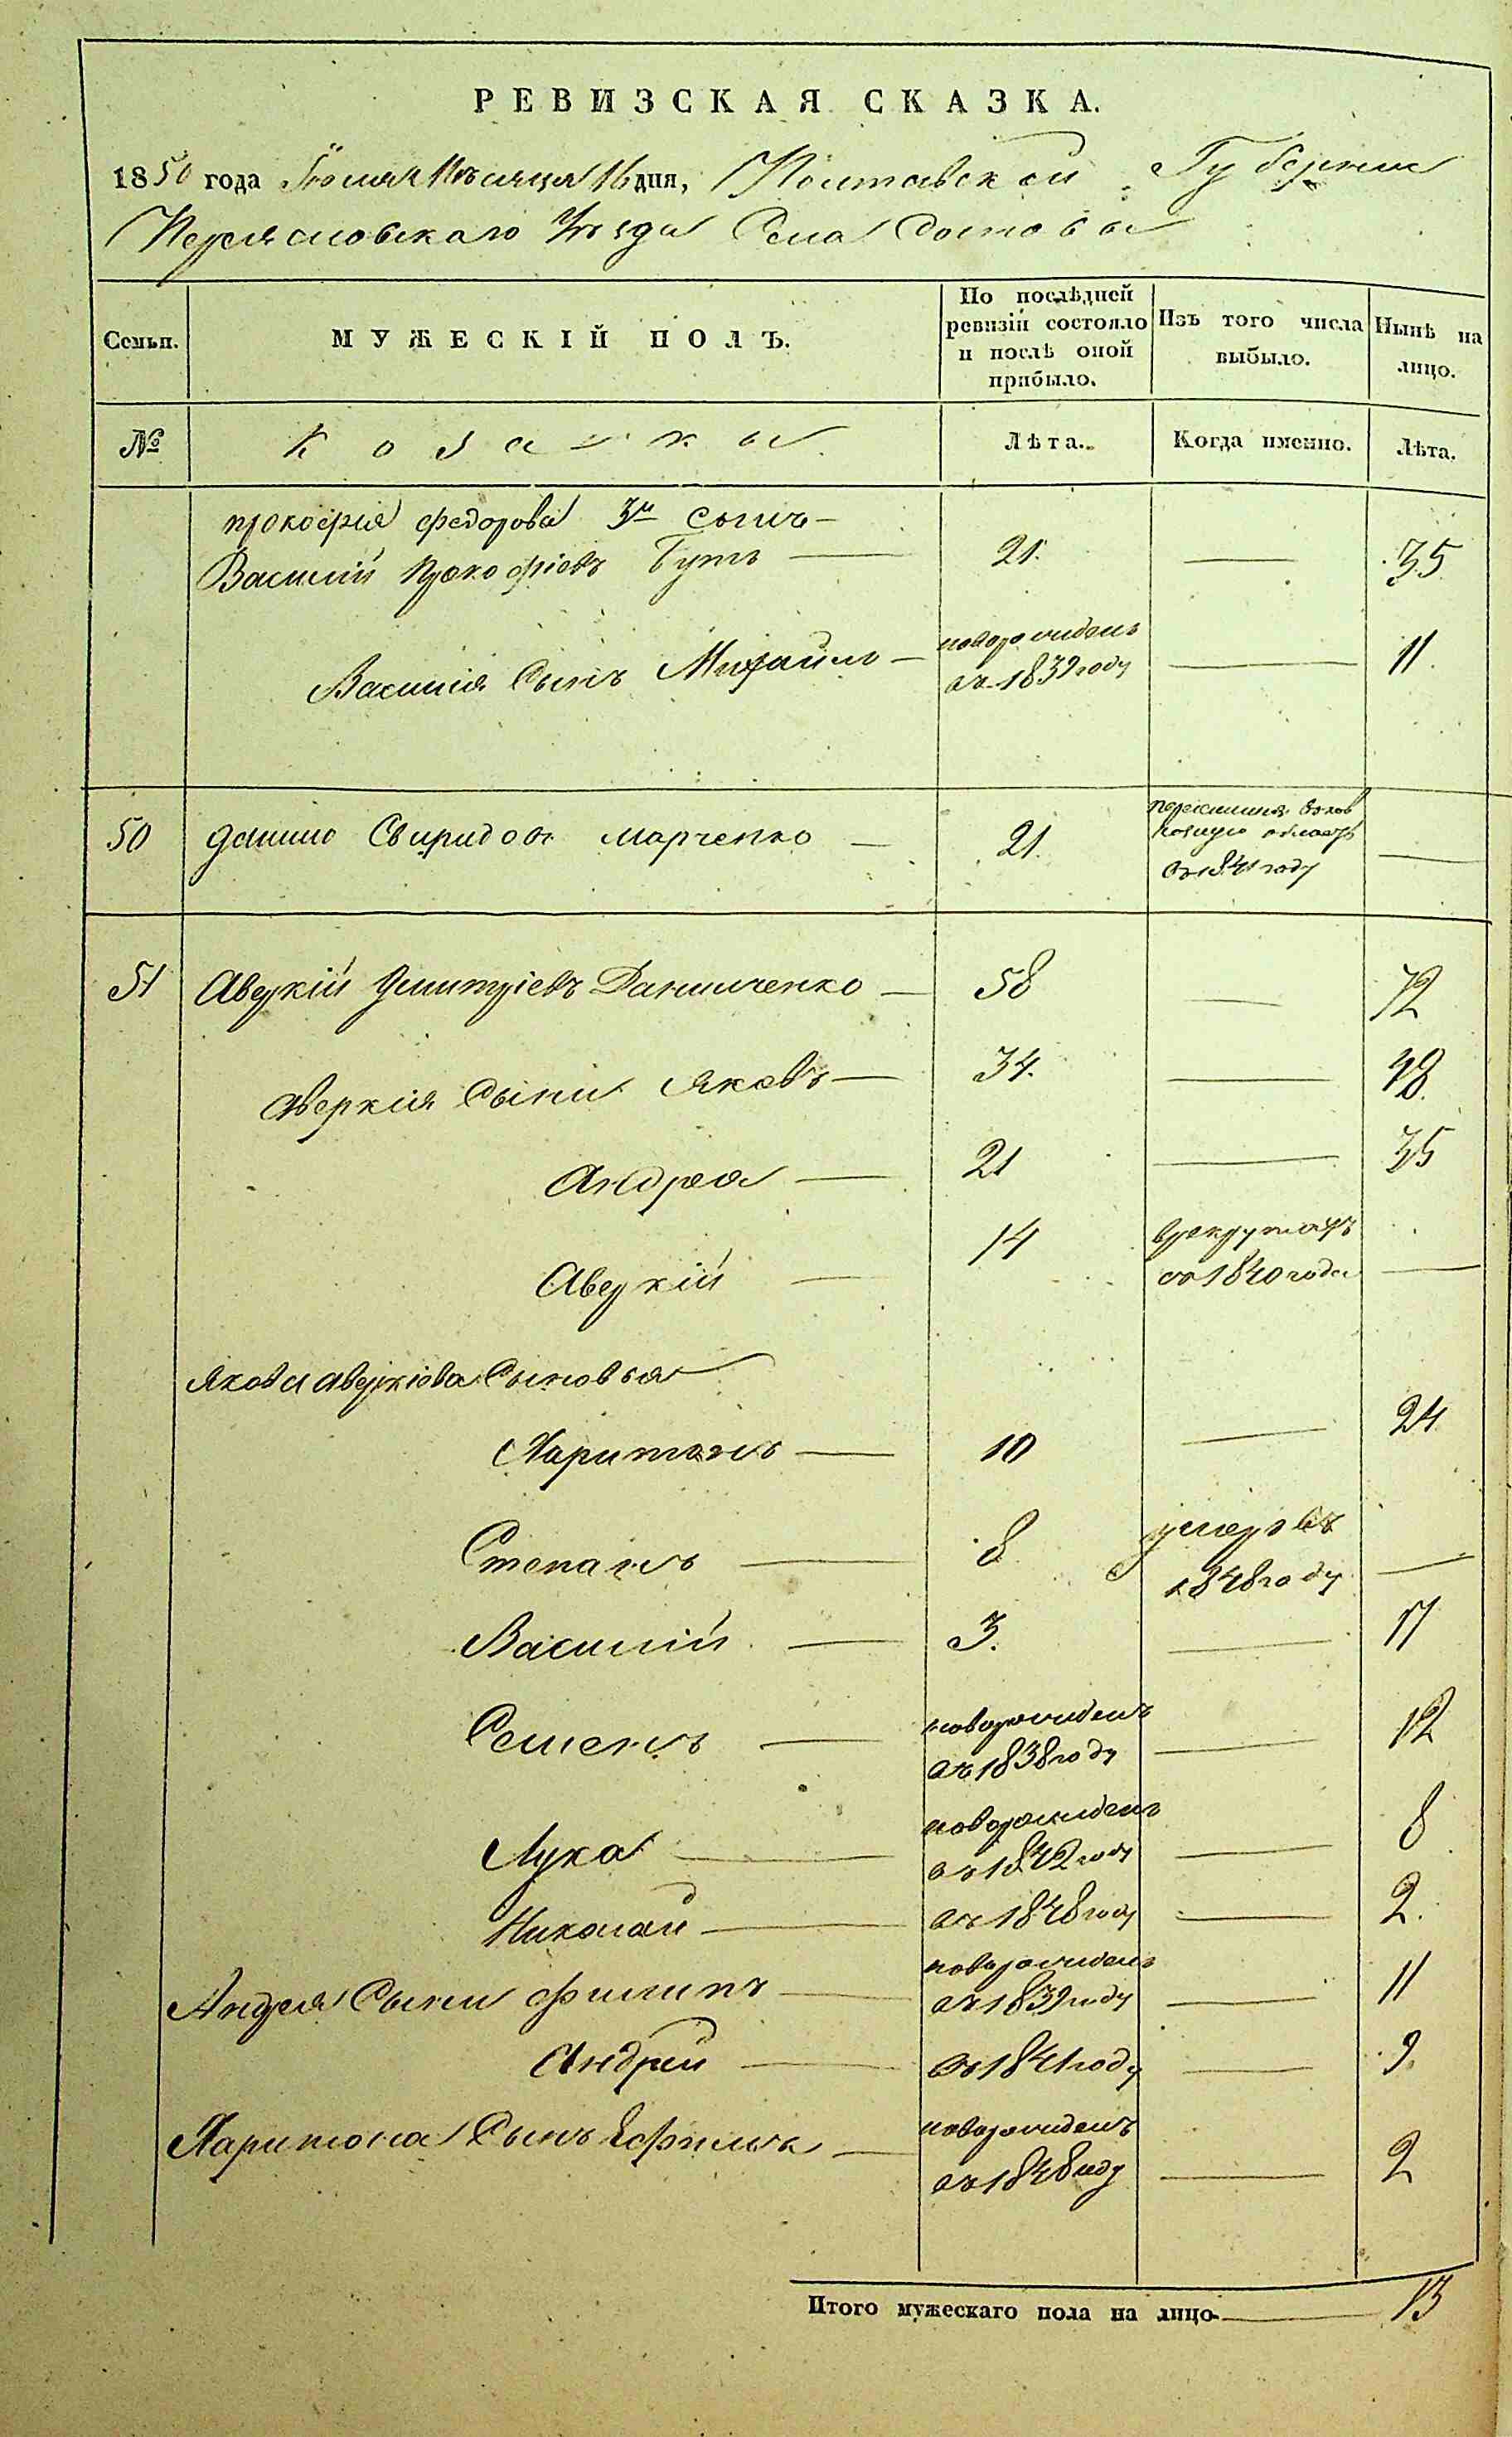 РЕВИЗСКАЯ СКАЗКА.
1850 года Іюля мѣсяца 16 дня, Полтавской Губерніи
Переясловскаго Уѣзда Села
Семьи.
МУЖЕСКІЙ ПОЛЪ.
По послѣдней
ревизіи состояло
и послѣ оной
прибыло.
Изъ того числа
выбыло.
Нынѣ на
лицо.
№
Козаки
Лѣта.
Когда именно.
Лѣта.
прокофія федорова 3й сынъ
Василій Прокофіевъ Гутъ 21. 35
Василія Сынъ Михаилъ новорожденъ
въ 1839 году 11.
50 данило Свиридовъ марченко 21.
область
въ 1841 году
51 Аверкій Дмитріевъ Данилченко 58 72
аверкія Сыны Яковъ 34. 48.
андрей 21 35
Аверкій 14 врекрутахъ
съ 1840 года
Якова аверкіева Сыновья
Харитонъ 10 24
Степанъ 8 умеръ въ
1848 году
Василій 3. 17
Семенъ новорожденъ
въ 1838 году 12
Лука новорожденъ
въ 1842 году 8
Николай въ 1848 году 2.
Андрея Сыны филипъ новорожденъ
въ 1839 году 11
Андрей въ 1841 году 9.
Харитона Сынъ Ефимъ новорожденъ
въ 1848 году 2
Итого мужескаго пола на лицо 13